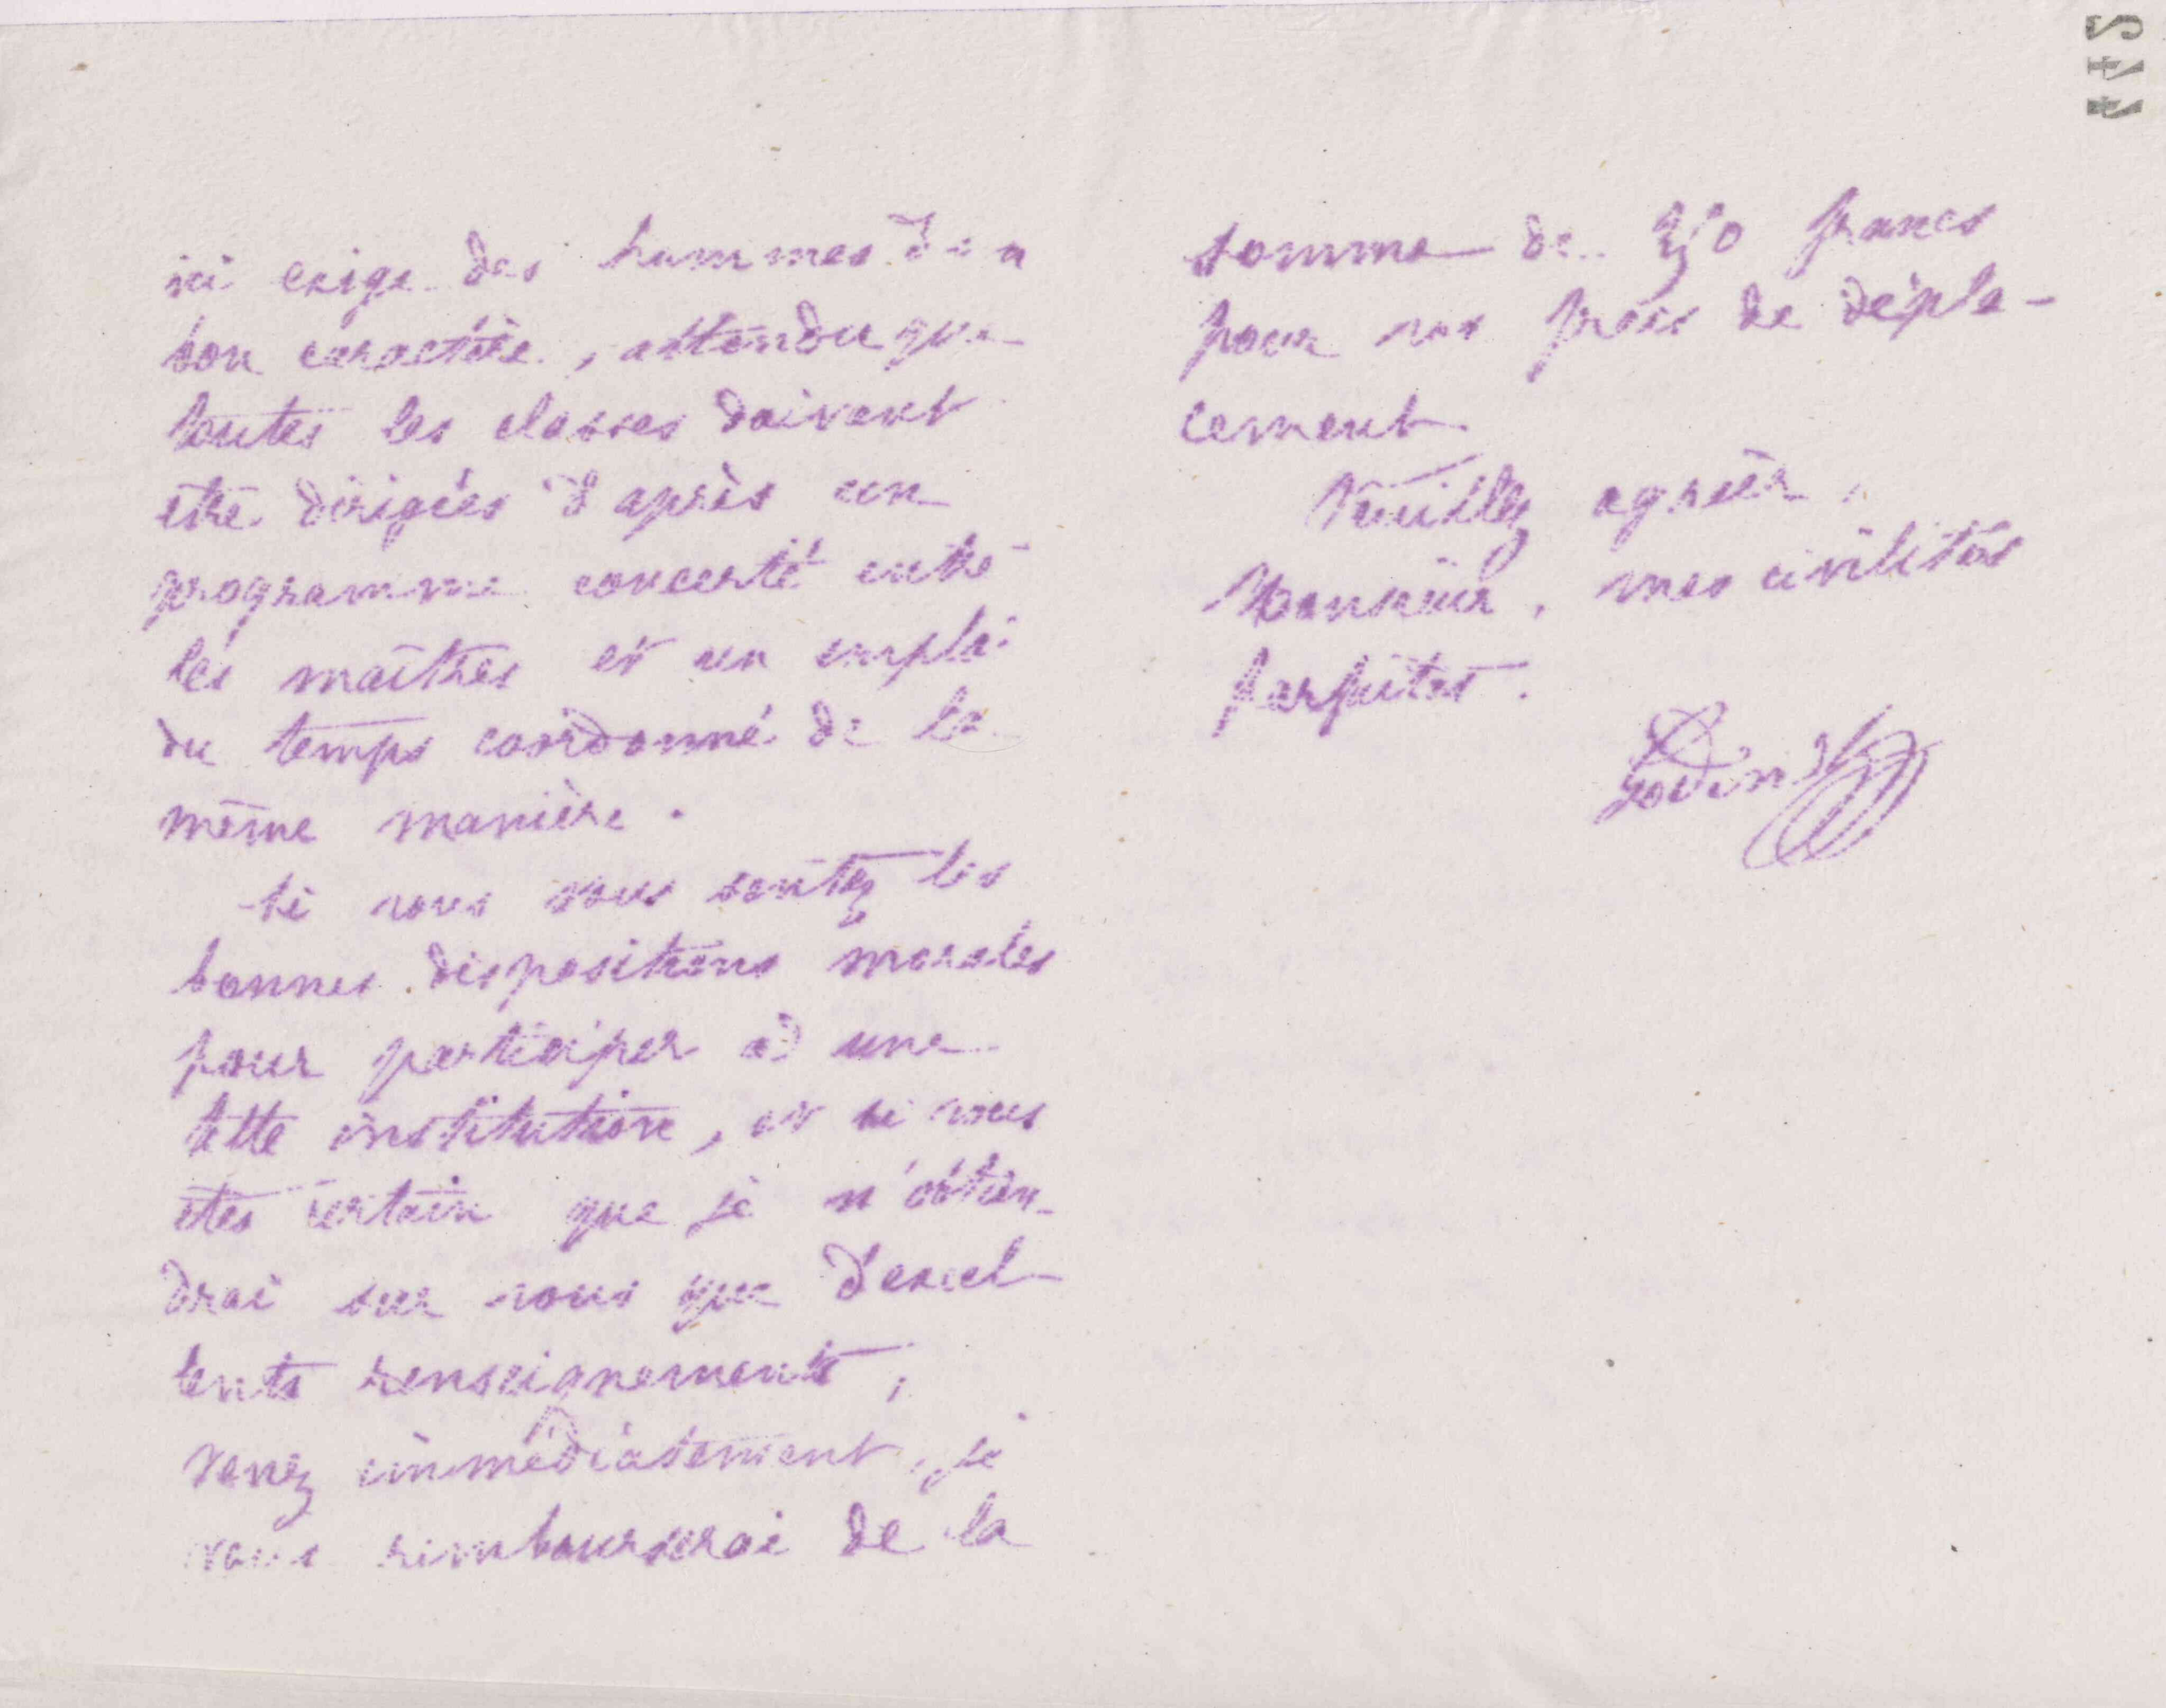 ici exige des hommes d'un
bon caractère, attendu que
toutes les classes doivent
être dirigées d'après un
programme concerté entre
les maîtres et un emploi
du temps coordonné de la
même manière.
Si vous vous sentez les
bonnes dispositions morales
pour participer à une
telle institution, et si vous
êtes certain que je n'obtien-
drai sur vous que d'excel-
lents renseignements,
venez immédiatement, je
vous rembourserai de la
somme de francs
pour vos frais de dépla-
cement.
Veuillez agréer,
Monsieur, mes civilités
parfaites.
Godin